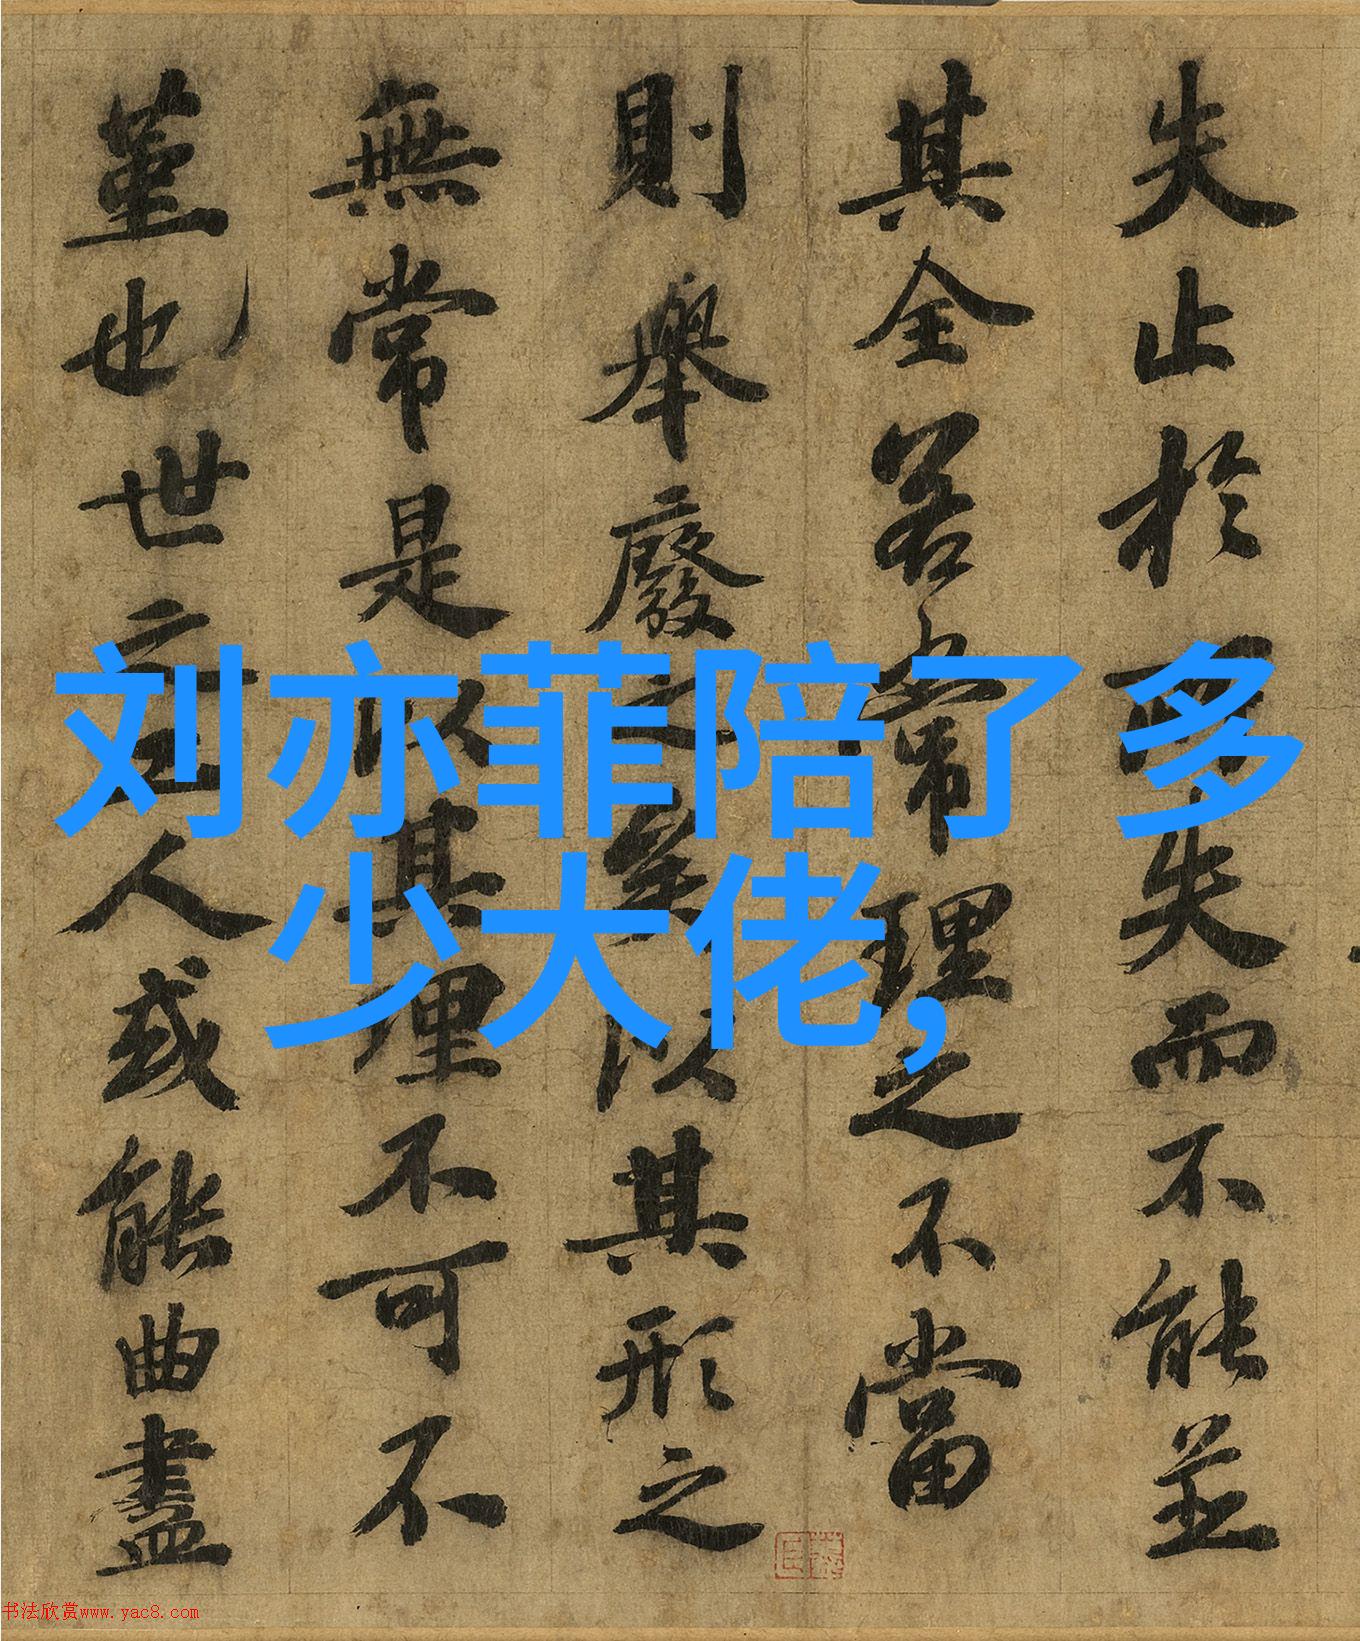 刘亦菲陪了多
少大佬,
失止於所失而不能並
其全若常理之不當
則舉廢之矣以其形之
無常是以其理不可不
堇也世之工人或能曲盡
书法欣赏www.yac8.com